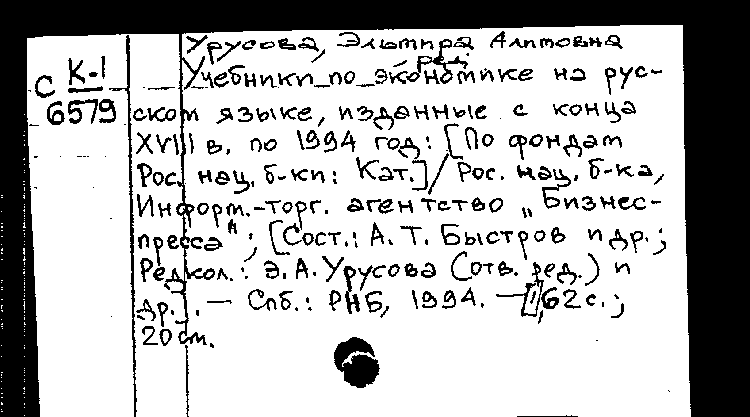 Урусова, Эльмира Алимовна
ред.
С К-1 Учебники по экономике на рус-
6579 ском языке, изданные с конца
XVIII в. по 1994 год: [По фондам
Рос. нац. б-ки: Кат.] / Рос. нац. б-ка,
Информ.-торг. агентство „Бизнес-
пресса“; [Сост.: А. Т. Быстров и др.;
Редкол.: Э. А. Урусова (отв. ред.) и
др.]. — Спб.: РНБ, 1994. — 62 с.;
20 см.